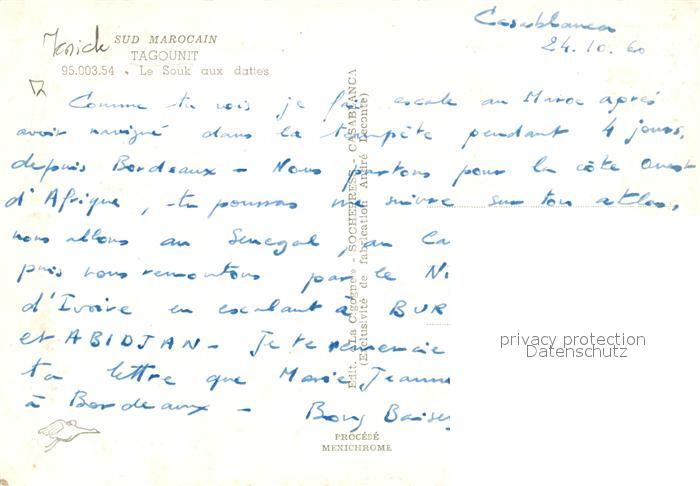 Casablanca
24.10.60
SUD MAROCAIN
TAGOUNIT
95.003.54 . Le Souk aux dattes
Comme tu vois je fais escale au Maroc après
avoir navigué dans la tempête pendant 4 jours,
depuis Bordeaux - Nous partons pour la côte Ouest
d'Afrique, tu pourras me suivre sur ton atlas,
nous allons au Sénégal, au Ca
puis nous remontons par le Ni
d'Ivoire en escalant à BUR
et ABIDJAN - Je te remercie
ta lettre que Marie Jeanne
à Bordeaux - Bons Baisers
Edit. "La Cigogne" - SOCHEPRESS - CASABLANCA
(Exclusivité de fabrication André Leconte)
PROCÉDÉ
MEXICHROME
privacy protection
Datenschutz